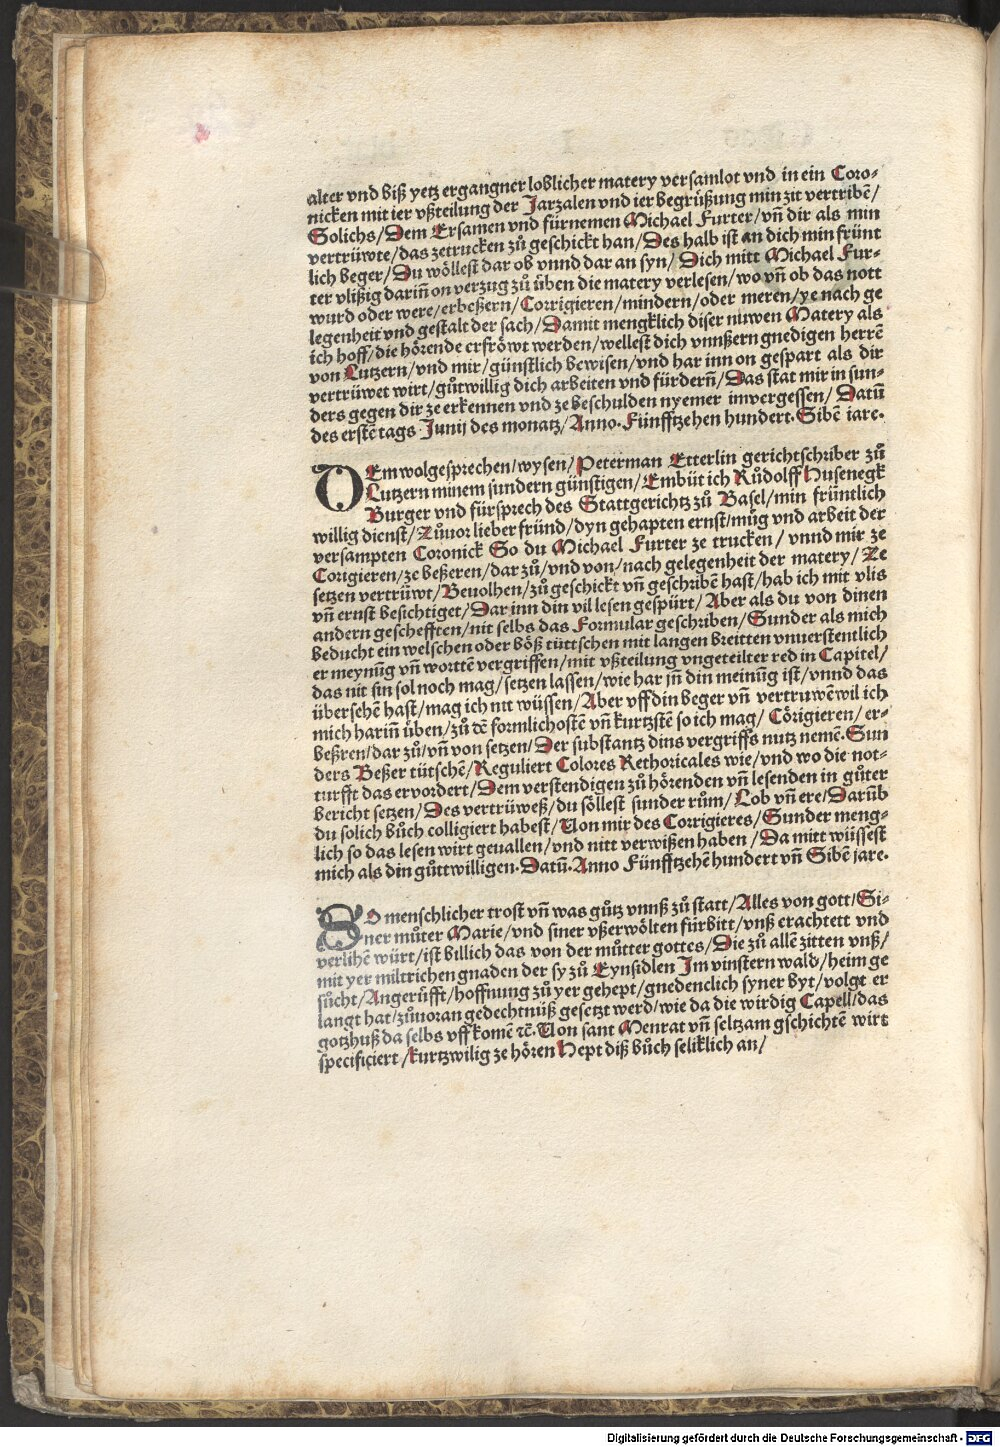 alter vnd biß yetz ergangner loblicher matery versamlot vnd in ein Coro-
nicken mit ier vßteilung der Jarzalen vnd ier begrüßung min zit vertribē/
Solichs/Dem Ersamen vnd fürnemen Michael Furter/vn̄ dir als min
vertrüwte/das zetrucken zů geschickt han/Des halb ist an dich min frünt
lich beger/Du wöllest dar ob vnnd dar an syn/Dich mitt Michael Fur-
ter vlißig darin̄ on verzug zů üben die matery verlesen/wo vn̄ ob das nott
wurd oder were/erbeßern/Corrigieren/mindern/oder meren/ye nach ge
legenheit vnd gestalt der sach/Damit mengklich diser nuwen Matery als
ich hoff/die hörende erfröwt werden/wellest dich vnnßern gnedigen herrē
von Lutzern/vnd mir/günstlich bewisen/vnd har inn on gespart als dir
vertrüwet wirt/gůtwillig dich arbeiten vnd fürdern̄/Das stat mir in sun-
ders gegen dir ze erkennen vnd ze beschulden nyemer imvergessen/Datū
des erstē tags Junij des monatz/Anno. Fünfftzehen hundert. Sibē iare.
DEm wolgesprechen/wysen/Peterman Etterlin gerichtschriber zů
Lutzern minem sundern günstigen/Embüt ich Růdolff Husenegk
Burger vnd fürsprech des Stattgerichtz zů Basel/min früntlich
willig dienst/Zůuor lieber fründ/dyn gehapten ernst/müg vnd arbeit der
versampten Coronick So du Michael Furter ze trucken/vnnd mir ze
Corigieren/ze beßeren/dar zů/vnd von/nach gelegenheit der matery/Ze
setzen vertrüwt/Beuolhen/zů geschickt vn̄ geschribē hast/hab ich mit vlis
vn̄ ernst besichtiget/Dar inn din vil lesen gespürt/Aber als du von dinen
andern gescheff­ten/nit selbs das Formular geschriben/Sunder als mich
beducht ein welschen oder böß tüttschen mit langen breitten vnuerstentlich
er meynūg vn̄ wortē vergriffen/mit vßteilung vngeteilter red in Capitel/
das nit sin sol noch mag/setzen lassen/wie har jn̄ din meinūg ist/vnnd das
übersehē hast/mag ich nit wüssen/Aber vff din beger vn̄ vertruwē wil ich
mich harin̄ üben/zů dē formlichostē vn̄ kurtzstē so ich mag/Cörigieren/er-
beßren/dar zů/vn̄ von setzen/Der substantz dins vergriffs nutz nemē. Sun
ders Beßer tütschē/Reguliert Colores Rethoricales wie/vnd wo die not-
turfft das ervordert/Dem verstendigen zů hörenden vn̄ lesenden in gůter
bericht setzen/Des vertrüweß/du söllest sunder rům/Lob vn̄ ere/Darūb
du solich bůch colligiert habest/Uon mir des Corrigieres/Sunder meng-
lich so das lesen wirt geuallen/vnd nitt verwißen haben/Da mitt wüssest
mich als din gůttwilligen. Datū. Anno Fünfftzehē hundert vn̄ Sibē jare.
SO menschlicher trost vn̄ was gůtz vnnß zů statt/Alles von gott/Si-
ner můter Marie/vnd siner vßerwölten fürbitt/vnß erachtett vnd
verlihē würt/ist billich das von der můtter gottes/Die zů allē zitten vnß/
mit yer miltrichen gnaden der sy zů Eynsidlen Jm vinstern wald/heim ge
sůcht/Angerüfft/hoffnung zů yer gehept/gnedenclich syner byt/volgt er
langt hat/zůuoran gedechtnüß gesetzt werd/wie da die wirdig Capell/das
gotzhuß da selbs vff komē ꝛc̄. Uon sant Menrat vn̄ seltzam gschichtē wirt
specificiert/kurtzwilig ze hören Hept diß bůch seliklich an/
Digitalisierung gefördert durch die Deutsche Forschungsgemeinschaft - DFG